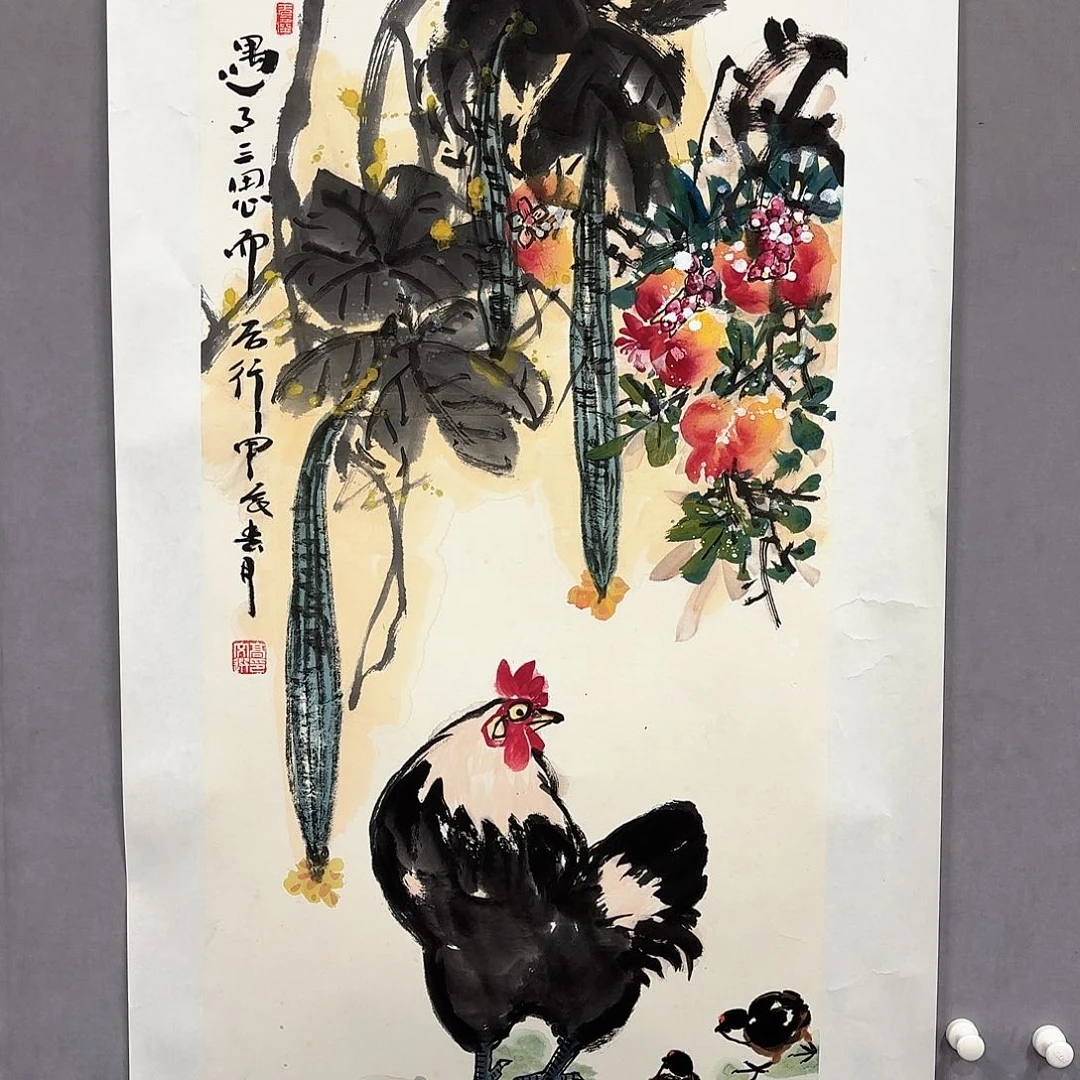 遇了三思而后行甲辰春月